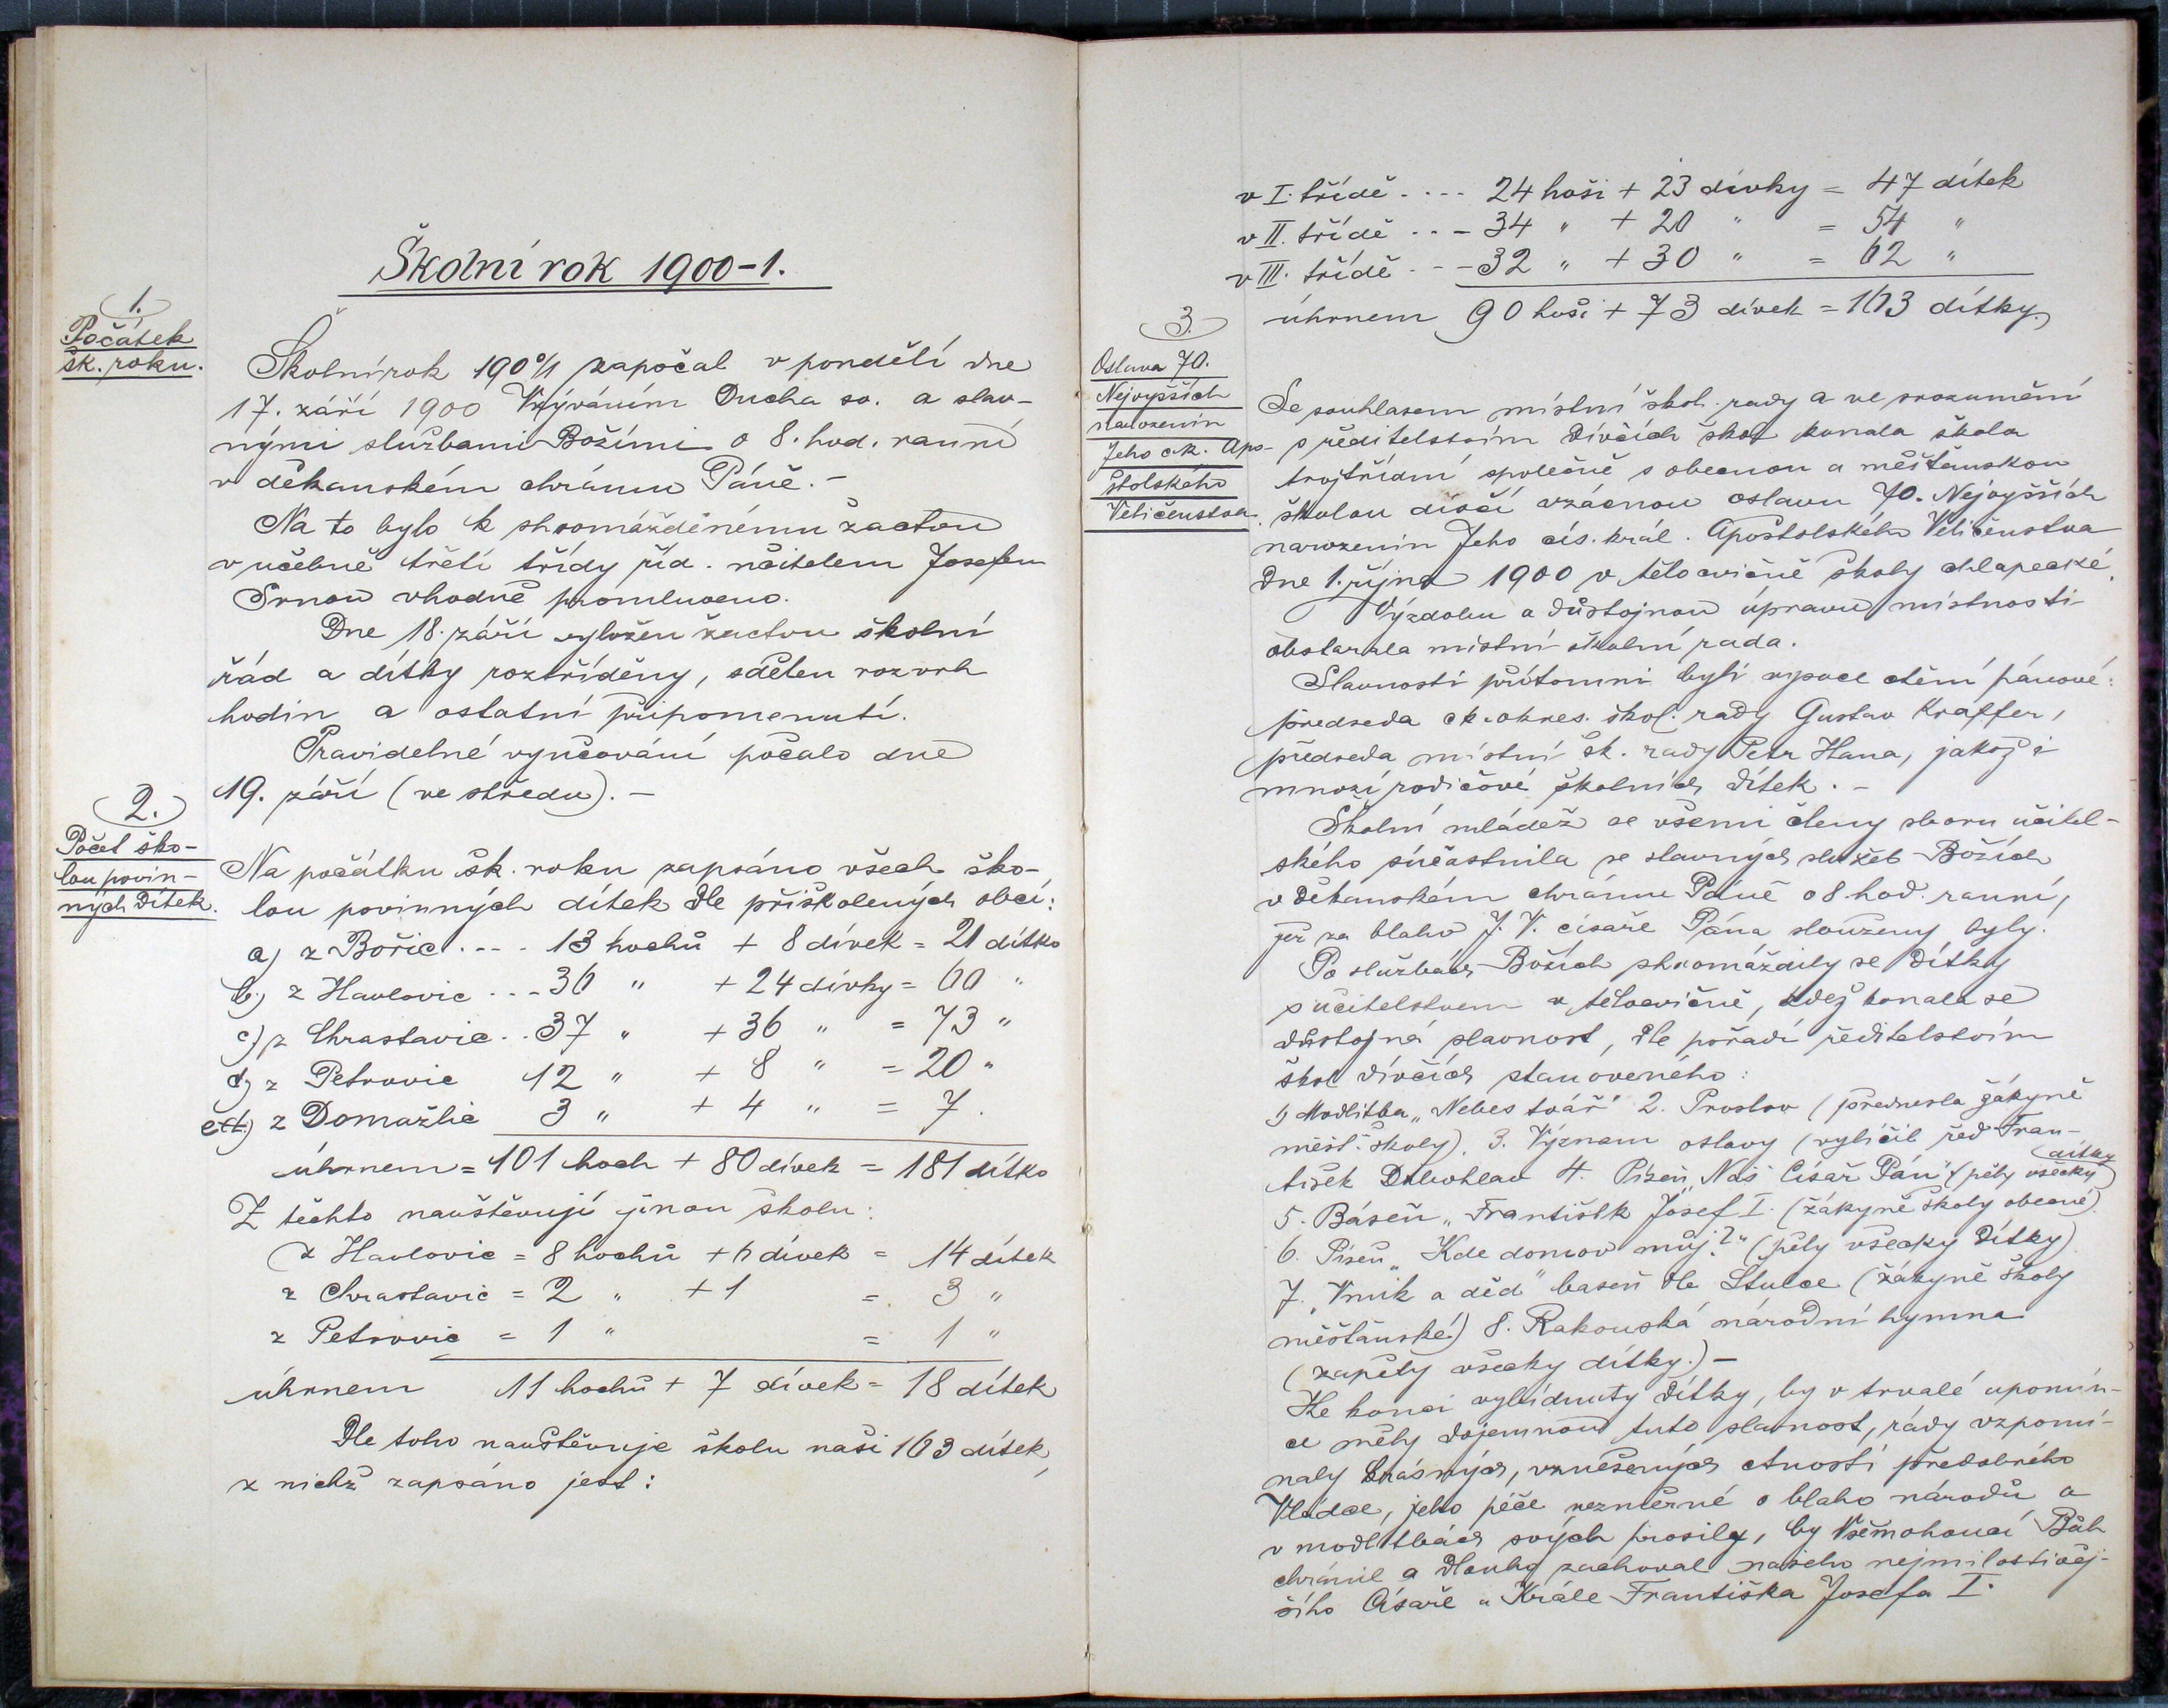 Školní rok 1900-1.
1.
Počátek
šk. roku.
Školní rok 190%1 započal v pondělí dne
17. září 1900 Vzýváním Ducha sv. a slav-
nými službami Božími o 8. hod. ranní
v děkanském chrámu Páně. -
Na to bylo k shromážděnému žactvu
v učebně třetí třídy říd. učitelem Josefem
Srnou vhodně promluveno.
Dne 18. září vyložen žactvu školní
řád a dítky roztříděny, sdělen rozvrh
hodin a ostatní připomenutí.
Pravidelné vyučování počalo dne
19. září (ve středu). -
2.
Počet ško-
lou povin-
ných dítek.
Na počátku šk. roku zapsáno všech ško-
lou povinných dítek dle přiškolených obcí:
a) z Bořic . - - . 13 hochů + 8 dívek = 21 dítko
b.) z Havlovic . . - 36 " + 24 dívky = 60 "
c) z Chrastavic . . 37 " + 36 " = 73 "
d) z Petrovic 12 " + 8 " = 20 "
e) z Domažlic 3 " + 4 " = 7.
úhrnem = 101 hoch + 80 dívek = 181 dítko
Z těchto navštěvují jinou školu:
z Havlovic = 8 hochů + 6 dívek = 14 dítek
z Chrastavic = 2 " + 1 = 3 "
z Petrovic = 1 " = 1 "
úhrnem 11 hochů + 7 dívek = 18 dítek
Dle toho navštěvuje školu naši 163 dítek,
z nichž zapsáno jest:
v I. třídě . - - - 24 hoši + 23 dívky = 47 dítek
v II. třídě . . - 34 " + 20 " = 54 "
v III. třídě . - - 32 " + 30 " = 62 "
úhrnem 90 hoši + 73 dívek = 163 dítky.
3.
Oslava 70.
Nejvyšších
narozenin
Jeho c.k. Apo-
štolského
Veličenstva.
Se souhlasem místní škol. rady a ve srozumění
s ředitelstvím dívčích škol konala škola
trojtřídní společně s obecnou a měšťanskou
školou dívčí vzácnou oslavu 70. Nejvyšších
narozenin Jeho cís. král. Apoštolského Veličenstva
dne 1. října 1900 v tělocvičně školy chlapecké.
Výzdobu a důstojnou úpravu místnosti
obstarala místní školní rada.
Slavnosti přítomni byli vysoce ctění pánové:
předseda c.k. okres. škol. rady Gustav Kraffer,
předseda místní šk. rady Petr Hana, jakož i
mnozí rodičové školních dítek. -
Školní mládež se všemi členy sboru učitel-
ského súčastnila se slavných služeb Božích
v děkanském chrámu Páně o 8 hod. ranní,
jež za blaho J. V. císaře Pána slouženy byly.
Po službách Božích shromáždily se dítky
s učitelstvem v tělocvičně, kdež konala se
důstojná slavnost, dle pořadí ředitelstvím
škol dívčích stanoveného:
1) Modlitba „Nebes tvář" 2. Proslov (přednesla žákyně
měšť. školy). 3. Význam oslavy (vylíčil řed. Fran-
tišek Dlouhlav 4. Píseň „Náš Císař Pán" (pěly všecky dítky)
5. Báseň „František Josef I. (žákyně školy obecné)
6. Píseň „Kde domov můj?" (pěly všecky dítky)
7. „Vnuk a děd" báseň dle Stulce (žákyně školy
měšťanské) 8. Rakouská národní hymna
(zapěly všecky dítky.) -
Ke konci vybídnuty dítky, by v trvalé upomín-
ce měly dojemnou tuto slavnost, rády vzpomí-
naly krásných, vznešených ctností předobrého
Vládce, jeho péče nezměrné o blaho národů a
v modlitbách svých prosily, by Všemohoucí Bůh
chránil a dlouho zachoval našeho nejmilostivěj-
šího Císaře a Krále Františka Josefa I.